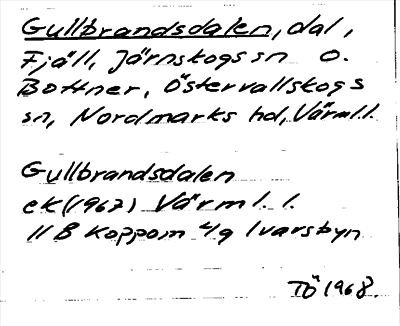 Gullbrandsdalen, dal,
Fjäll, Järnskogs sn o.
Bottner, Östervallskogs
sn, Nordmarks hd, Värml.l.
Gullbrandsdalen
ek (1967) Värml. l.
11 B Koppom 4g Ivarsbyn
TÖ 1968.